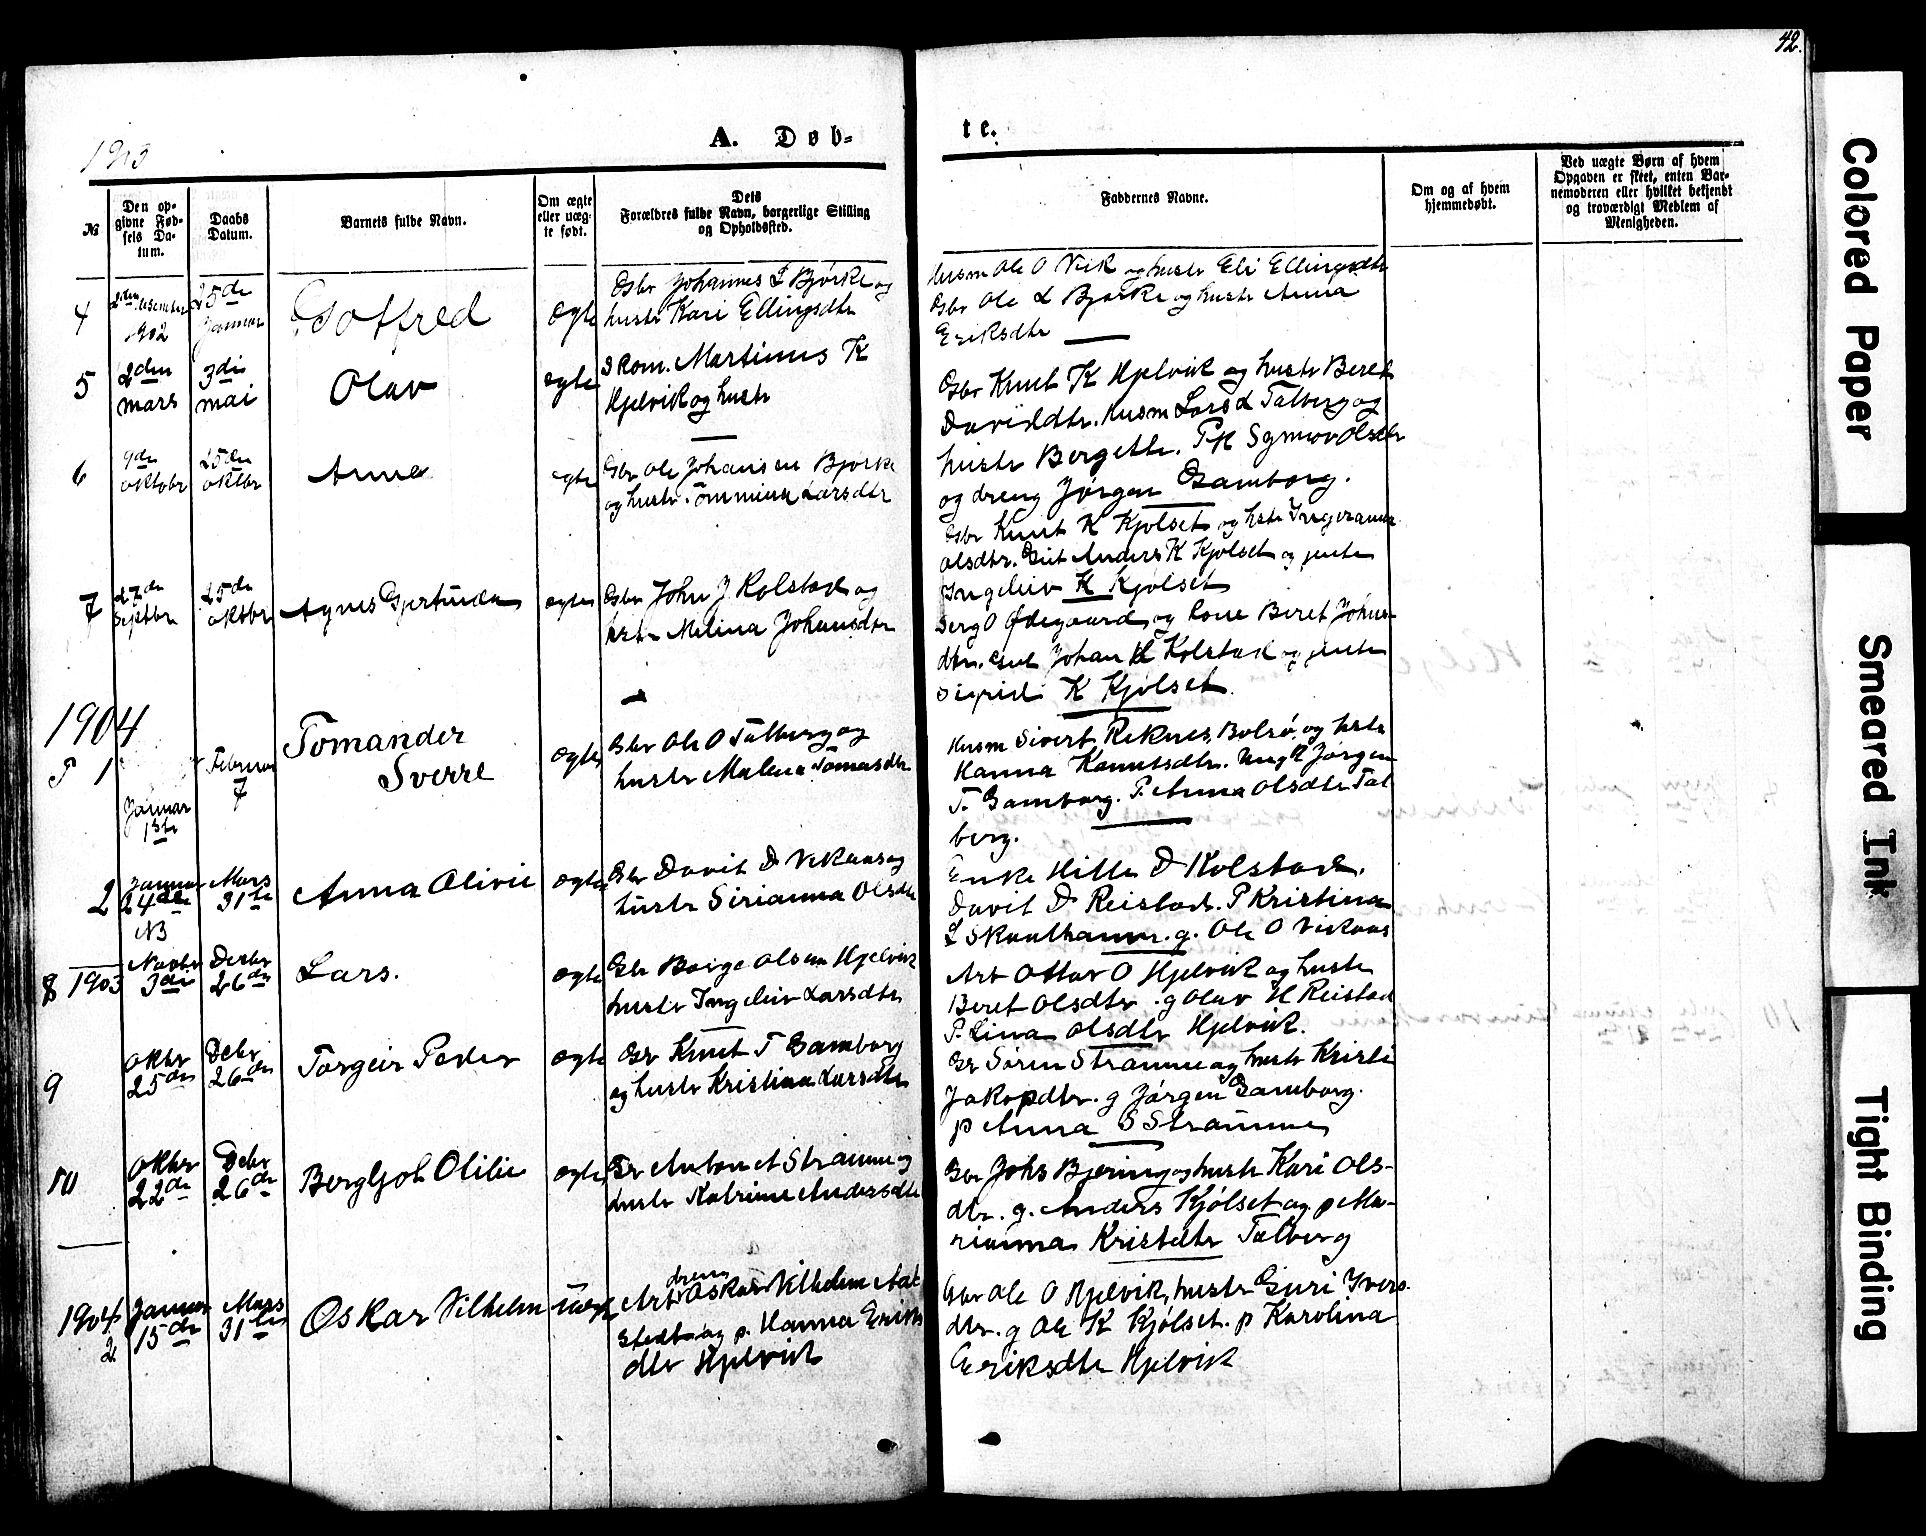 42.
1903
A. Døb-
te.
№
Den op-
givne Fød-
sels Da-
tum.
Daabs
Datum.
Barnets fulde Navn.
Om ægte
eller uæg-
te født.
Dets
Forældres fulde Navn, borgerlige Stilling
og Opholdssted.
Faddernes Navne.
Om og af hvem
hjemmedøbt.
Ved uægte Børn af hvem
Opgaven er skeet, enten Bar-
nemoderen eller hvilket bekjendt
og troværdigt Medlem af
Menigheden.
4
2den Desember
1902
25de
Januar
Gotfred
ægte
Gbr Johannes L Bjørke og
hustr Kari Ellingsdtr
Husm Ole O Vik og hustr Eli Ellingsdtr
Gbr Ole L Bjørke og hustr Anna
Eriksdtr
5
2den
mars
3die
mai
Olav
ægte
Skom. Martinus K
Hjelvik og hustr
Gbr Knut K Hjelvik og hustr Beret
Davidsdtr. Husm Lars L Talberg og
hustr Bergette. PK Synnøv Olsdtr
og dreng Jørgen Gamborg.
6
9de
oktobr
25de
oktbr
Anna
ægte
Gbr Ole Johansen Bjørke
og hustr. Tommina Larsdtr
Gbr Knut K Kjølset og hstr Ingeranna
Olsdtr. Gut Anders K Kjølset og jente
Ingeleiv K Kjølset
7
27de
septbr
25de
oktbr
Agnes Gjertruda
ægte
Gbr John J Kolstad og
hstr Melina Johansdtr
Berg O Ødegaard og kone Beret Johns-
dtr. Gut Johan H Kolstad og jente
Sigrid K Kjølset
1904
1
Januar
1ste
Februar
7
Tomander
Sverre
ægte
Gbr Ole O Talberg og
hustr Malena Tomasdtr
Husm Sivert Reknes, Bolsø, og hstr
Hanna Knutsdtr. Ungk Jørgen
T. Gamborg. P. Anna Olsdtr Tal
berg.
2
Januar
24de
NB
Mars
31te
Anna Olivie
ægte
Gbr Davit D Vikaas og
hustr Sirianna Olsdtr
Enke Hilla D Kolstad.
Davit D Reistad. P Kristina
L Skaalhamn. g. Ole O Vikaas
8
1903
Novbr
3die
Desbr
26de
Lars.
ægte
Gbr Børge Olsen Hjelvik
hustr Ingeleiv Larsdtr
Arb Ottar O Hjelvik og hustr
Beret Olsdtr. g Olav H Reistad
P. Lina Olsdtr Hjelvik.
9
Oktbr
25de
Debr
26de
Torgeir Peder
ægte
Gbr Knut T Gamborg
og hustr Kristina Larsdtr
Gbr Søren Strømme og hustr Kristi
Jakopdtr. g Jørgen Gamborg.
p Anna S Strømme
10
Oktbr
22de
Debr
26de
Bergljot Olilie
ægte
Gbr Anton A Strømme og
hustr Katrina Andersdtr
Gbr Johs Bjering og hustr Kari Ols-
dtr. g. Anders Kjølset og p Ma-
rianna Kristdtr Talberg
1904
2
Januar
15de
Mars
31te
Oskar Vilhelm
uægte
dreng
Arb Oskar Vilhelm Aak
og p. Hanna Eriks
dtr Hjelvik
Gbr Ole O Hjelvik, hustr Guri Ivers-
dtr. g Ole K Kjølset. p Karolina
Eriksdtr Hjelvik
Colored Paper
Smeared Ink
Tight Binding